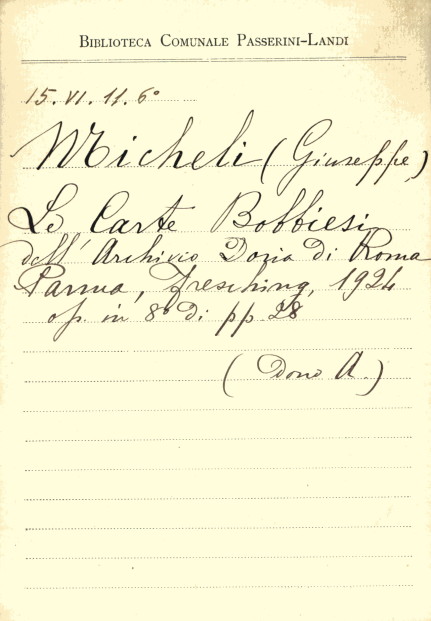 BIBLIOTECA COMUNALE PASSERINI-LANDI
15. VI. 11. 6º
Micheli (Giuseppe)
Le Carte Bobbiesi
dell'Archivio Doria di Roma
Parma, Fresching, 1924
op. in 8º di pp 28
(Dono A.)